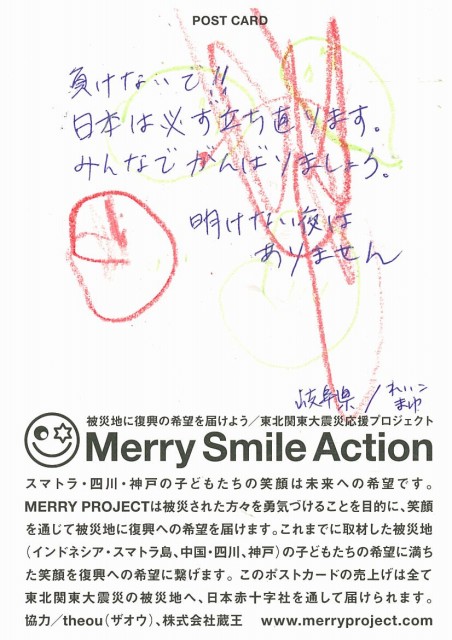 POST CARD
負けないで!!
日本は必ず立ち直ります。
みんなでがんばりましょう。
明けない夜は
ありません
岐阜県/れいこ
まゆ
被災地に復興の希望を届けよう/東北関東大震災応援プロジェクト
Merry Smile Action
スマトラ・四川・神戸の子どもたちの笑顔は未来への希望です。
MERRY PROJECTは被災された方々を勇気づけることを目的に、笑顔
を通じて被災地に復興への希望を届けます。これまでに取材した被災地
(インドネシア・スマトラ島、中国・四川、神戸)の子どもたちの希望に満ち
た笑顔を復興への希望に繋げます。このポストカードの売上げは全て
東北関東大震災の被災地へ、日本赤十字社を通して届けられます。
協力/theou(ザオウ)、株式会社蔵王 www.merryproject.com